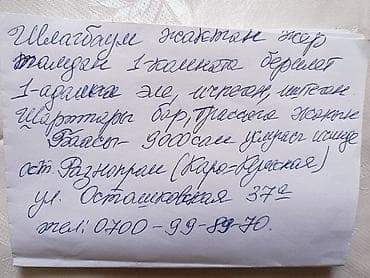 Шлагбаум жактан жер
тамдан 1-комната берилет
1-адамга эле, ичкен, чеккен
Шарттары бар, трассага жакын
Баасы - 9000сом
ост. Разнопром (Каро-Курская)
ул. Осташковская 37а
тел: 0700-99-89-70.